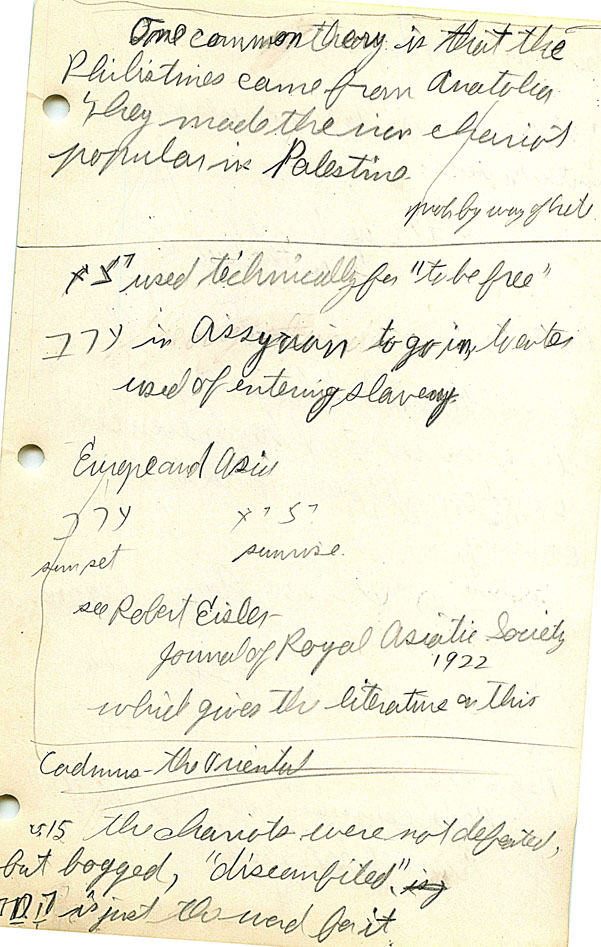 One common theory is that the
Philistines came from Anatolia
They made the iron chariot
popular in Palestine.
prob by way of
יצא used technically for "to be free"
ערב in Assyrian to go in, to enter
used of entering slavery.
Europe and Asia
ערב
sunset
sunrise.
see Robert Eisler -
Journal of Royal Asiatic Society
1922
which gives the literature on this
Cadmus - the Oriental
vs 15 the chariots were not defeated,
but bogged, "discomfited"
is just the word for it